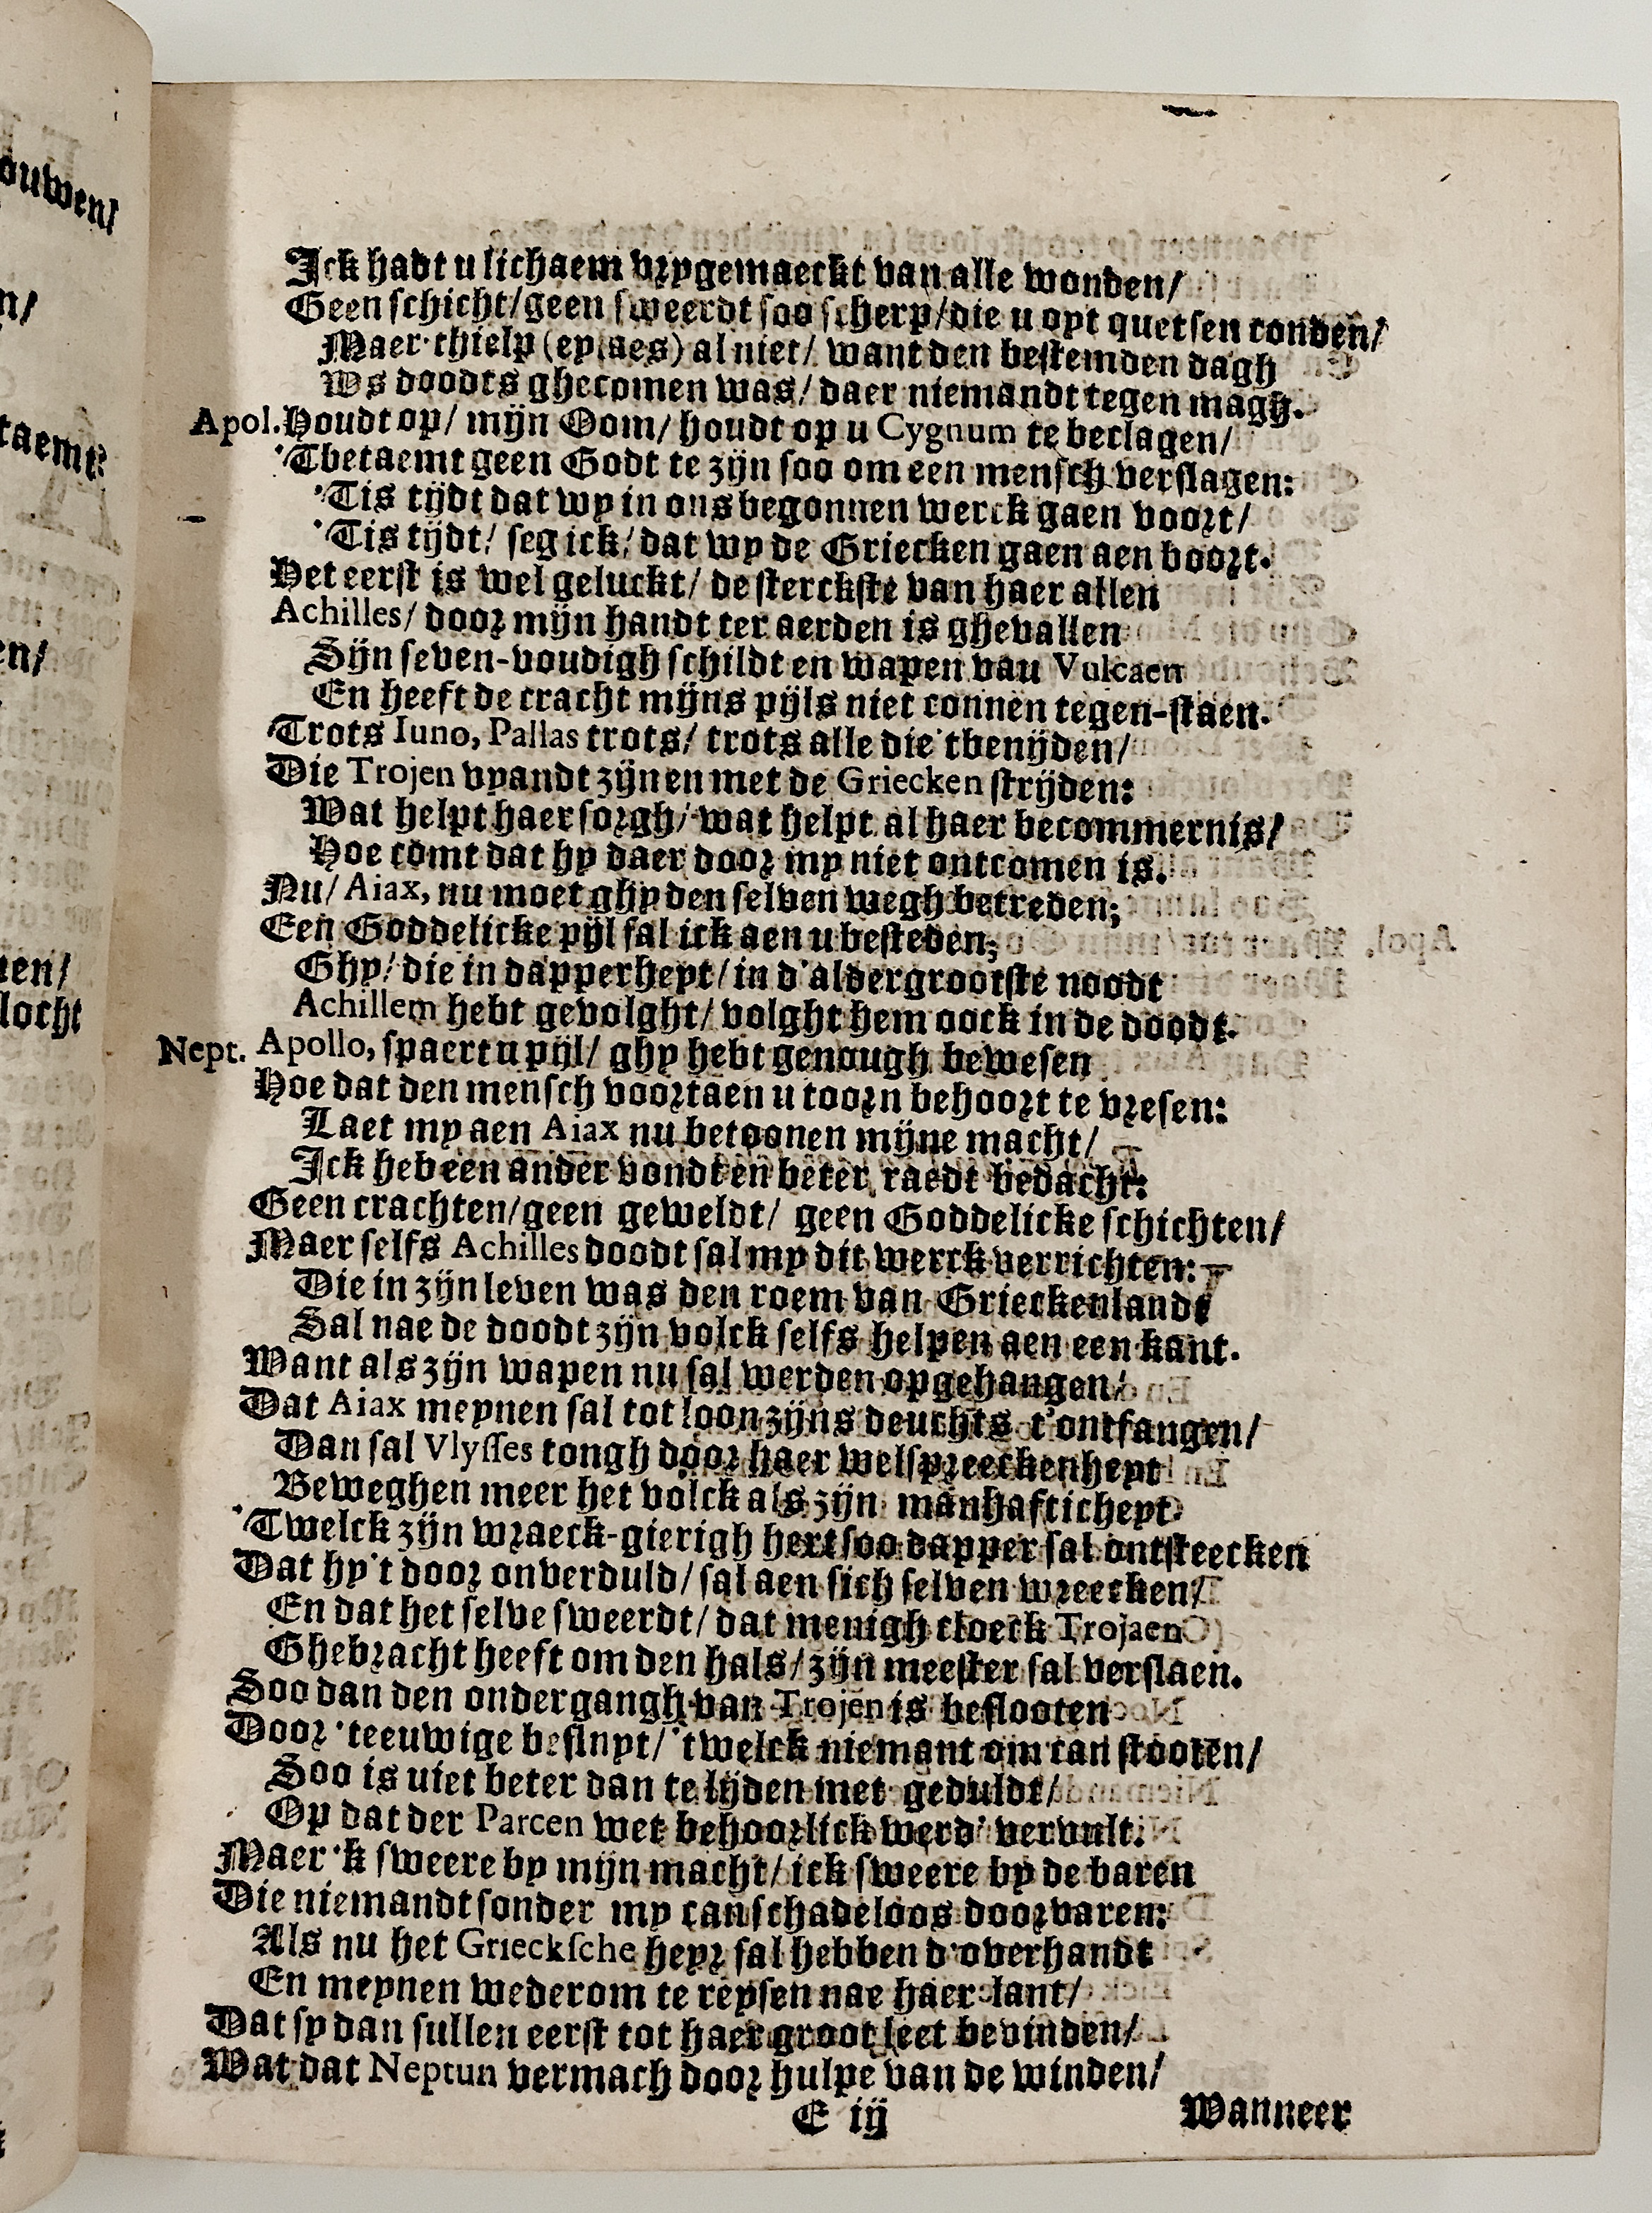 Ick hadt u lichaem vrygemaeckt van alle wonden/
Geen schicht/geen sweerdt soo scherp/die u oyt quetsen conden/
Maer thielp (eylaes) al niet/ want den bestemden dagh
Ws doodts ghecomen was/ daer niemandt tegen magh.
Apol. Houdt op/ mijn Oom/ houdt op u Cygnum te beclagen/
'Tbetaemt geen Godt te zijn soo om een mensch verslagen:
'Tis tijdt dat wy in ons begonnen werck gaen voort/
'Tis tijdt/ seg ick/ dat wy de Griecken gaen aen boort.
Het eerst is wel geluckt/ de sterckste van haer allen
Achilles/ door mijn handt ter aerden is ghevallen
Sijn seven-voudigh schildt en wapen vau Vulcaen
En heeft de cracht mijns pijls niet connen tegen-staen.
Trots Iuno, Pallas trots/ trots alle die 'tbenijden/
Die Trojen vyandt zijn en met de Griecken strijden:
Wat helpt haer sorgh/ wat helpt al haer becommernis/
Hoe comt dat hy daer door my niet ontcomen is.
Nu/ Aiax, nu moet ghy den selven wegh betreden;
Een Goddelicke pijl sal ick aen u besteden;
Ghy/ die in dapperheyt/ in d'aldergrootste noodt
Achillem hebt gevolght/ volght hem oock in de doodt.
Nept. Apollo, spaert u pijl/ ghy hebt genough bewesen
Hoe dat den mensch voortaen u toorn behoort te vresen:
Laet my aen Aiax nu betoonen mijne macht/
Ick heb een ander vondt en beter raedt bedacht:
Geen crachten/geen geweldt/ geen Goddelicke schichten/
Maer selfs Achilles doodt sal my dit werck verrichten:
Die in zijn leven was den roem van Grieckenlandt
Sal nae de doodt zijn volck selfs helpen aen een kant.
Want als zijn wapen nu sal werden opgehangen/
Dat Aiax meynen sal tot loon zijns deuchts t'ontfangen/
Dan sal Vlysses tongh door haer welspreeckenheyt
Beweghen meer het volck als zijn manhafticheyt
'Twelck zijn wraeck-gierigh hert soo dapper sal ontsteecken
Dat hy't door onverduld/ sal aen sich selven wreecken/
En dat het selve sweerdt/ dat menigh cloeck Trojaen
Ghebracht heeft om den hals/ zijn meester sal verslaen.
Soo dan den ondergangh van Trojen is beslooten
Door 'teeuwige beslnyt/ 'twelck niemant om can stooten/
Soo is uiet beter dan te lijden met geduldt/
Op dat der Parcen wet behoorlick werd' vervult.
Maer 'k sweere by mijn macht/ ick sweere by de baren
Die niemandt sonder my can schadeloos doorvaren:
Als nu het Griecksche heyr sal hebben d'overhandt
En meynen wederom te reysen nae haer lant/
Dat sy dan sullen eerst tot haer groot leet bevinden/
Wat dat Neptun vermach door hulpe van de winden/
E ij
Wanneer